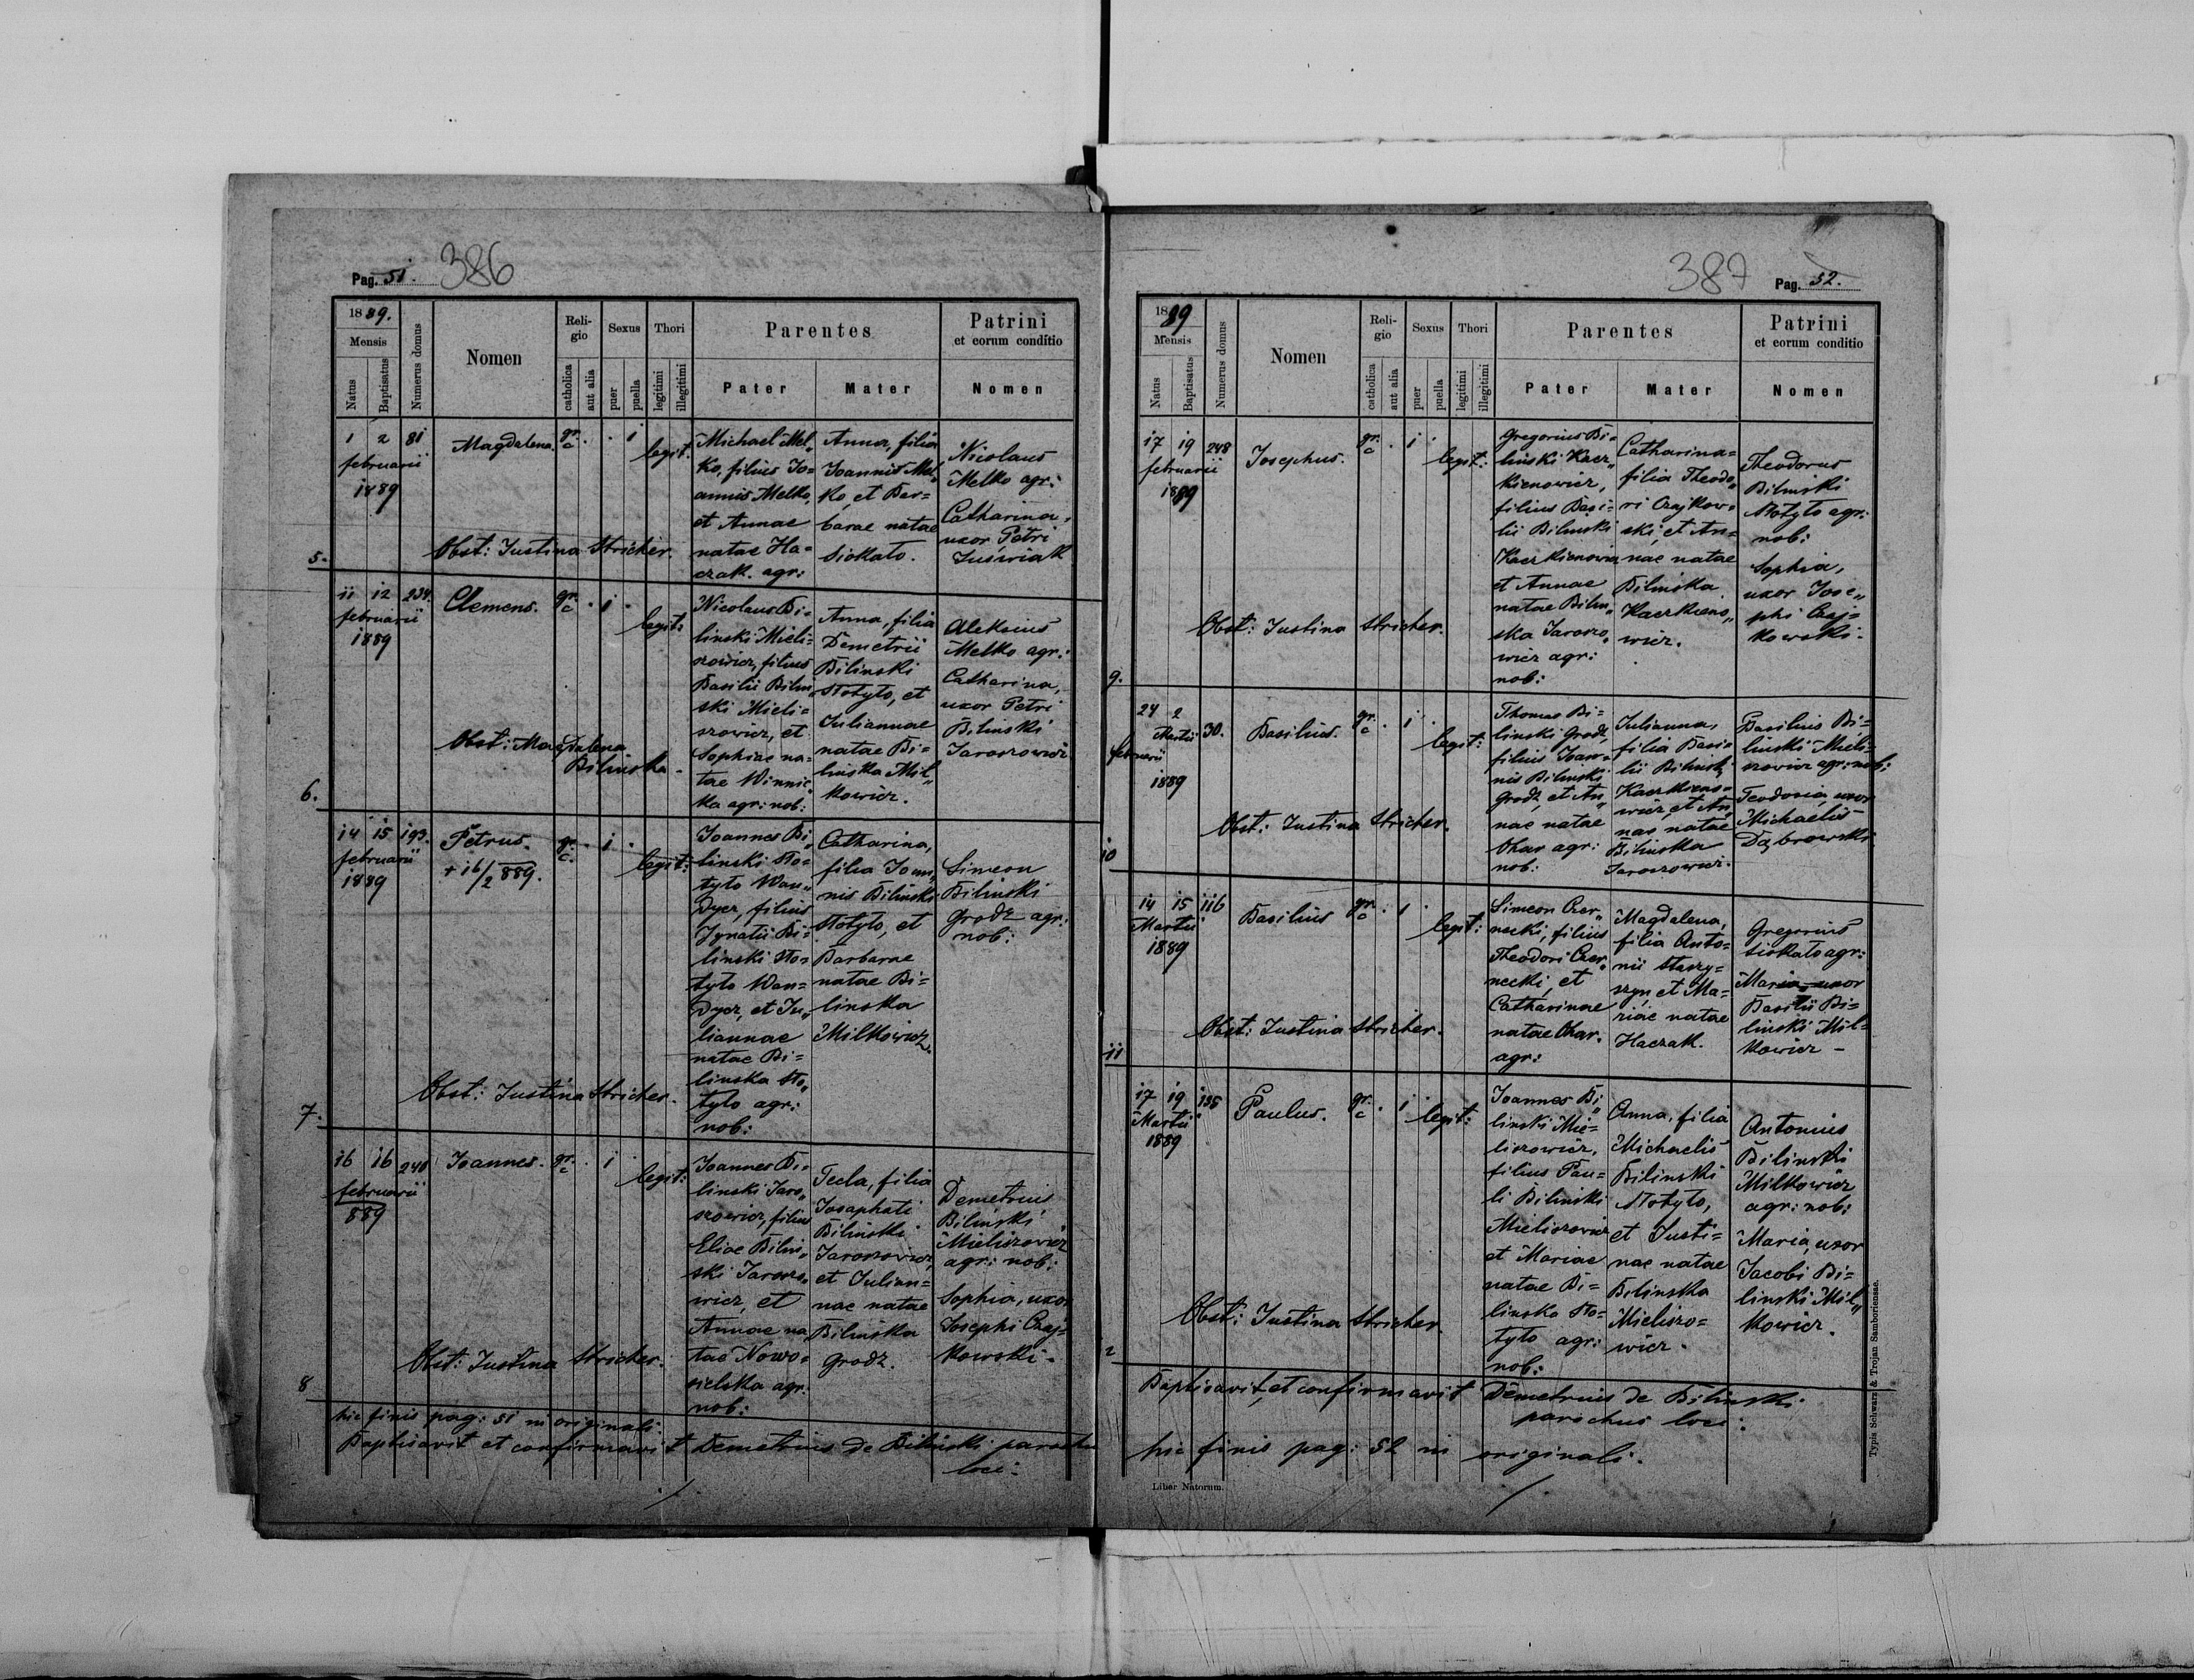 Pag. 51. 386
1889.
Mensis
Natus
Baptisatus
Numerus domus
Nomen
Reli-
gio
catholica
aut alia
Sexus
puer
puella
Thori
legitimi
illegitimi
Parentes
Pater
Mater
Patrini
et eorum conditio
Nomen
5.
1 2 81
februarii
1889
Magdalena.
gr.
c
1
legit:
Michael Mel„
ko, filius Jo=
annis Melko,
et Annae
natae Ha=
czak. agr:
Anna, filia
Joannis Mel„
ko, et Bar=
barae natae
Siokało.
Nicolaus
Melko agr:
Catharina,
uxor Petri
Juświak
Obst: Justina Stricher.
6.
11 12 234.
februarii
1889
Clemens.
gr.
c
1
legit:
Nicolaus Bi=
linski Mieli=
szowicz, filius
Basilii Bilin„
ski Mieli=
szowicz, et
Sophiae na=
tae Winnic„
ka agr: nob:
Anna, filia
Demetrii
Bilinski
Stotyto, et
Juliannae
natae Bi=
linska Mil„
kowicz.
Aleksius
Melko agr:
Catharina,
uxor Petri
Bilinski
Jaroszowicz
Obst: Magdalena
Bilinska.
7.
14 15 193.
februarii
1889
Petrus.
+ 16/2 889.
gr.
c.
1
legit:
Joannes Bi„
linski Sto=
tyto Wan„
dycz, filius
Ignatii Bi=
linski Sto=
tyto Wan=
dycz, et Ju„
liannae
natae Bi=
linska Sto„
tyto agr:
nob:
Catharina,
filia Joan„
nis Bilinski
Stotyto, et
Barbarae
natae Bi=
linska
Milkowicz.
Simeon
Bilinski
Grodz agr:
nob:
Obst: Justina Stricher.
8
16 16 241
februarii
889
Joannes.
gr.
c
1
legit:
Joannes Bi=
linski Jaro„
szowicz, filius
Eliae Bilin„
ski Jaroszo„
wicz, et
Annae na
tae Nowo=
sielska agr.
nob:
Tecla, filia
Josaphati
Bilinski
Jaroszowicz,
et Julian=
nae natae
Bilinska
Grodz.
Demetrius
Bilinski
Mieliszowicz
agr: nob:
Sophia, uxor
Josephi Czaj=
kowski.
Obst: Justina Stricher.
hic finis pag: 51 in originali.
Baptisavit et confirmavit Demetrius de Bilinski parochus
loci:
387 Pag. 52.
1889
Mensis
Natus
Baptisatus
Numerus domus
Nomen
Reli-
gio
catholica
aut alia
Sexus
puer
puella
Thori
legitimi
illegitimi
Parentes
Pater
Mater
Patrini
et eorum conditio
Nomen
9.
17 19 248
februarii
1889
Josephus.
gr.
c
1
legit:
Gregorius Bi=
linski Kacz„
kienowicz,
filius Basi=
lii Bilinski
Kaczkienowicz
et Annae
natae Bilin„
ska Jaroszo„
wicz agr:
nob:
Catharina=
filia Theodo„
ri Czajkow=
ski, et An=
nae natae
Bilinska
Kaczkieno„
wicz.
Theodorus
Bilinski
Stotyto agr:
nob:
Sophia,
uxor Jose„
phi Czaj=
kowski.
Obst: Justina Stricher.
10
24 2
Martii
30.
februarii
1889
Basilius.
gr.
c
1
legit:
Thomas Bi=
linski Grodz,
filius Joan=
nis Bilinski
Grodz, et An„
nae natae
Char agr:
nob:
Julianna,
filia Basi=
lii Bilinski
Kaczkieno=
wicz, et An„
nae natae
Bilinska
Jaroszowicz.
Basilius Bi=
linski Mieli=
szowicz agr: nob:
Teodosia, uxor
Michaelis
Dąbrowski.
Obst: Justina Stricher.
11
14 15 116
Martii
1889
Basilius
gr.
c
1
legit:
Simeon Czer„
necki, filius
Theodori Czer„
necki, et
Catharinae
natae Char.
agr:
Magdalena,
filia Anto=
nii Staszy=
szyn, et Ma=
riae natae
Haczak.
Gregorius
Siokało agr:
Maria, uxor
Basilii Bi=
linski Mil=
kowicz –
Obst: Justina Stricher.
2
17 19 138
Martii
1889
Paulus.
gr.
c
1
legit:
Joannes Bi„
linski Mie=
liszowicz,
filius Pau=
li Bilinski
Mieliszowicz
et Mariae
natae Bi=
linska Sto=
tyto agr:
nob:
Anna, filia
Michaelis
Bilinski
Stotyto,
et Justi=
nae natae
Bilinska
Mieliszo=
wicz.
Antonius
Bilinski
Milkowicz
agr: nob:
Maria, uxor
Jacobi Bi=
linski Mil„
kowicz.
Obst: Justina Stricher.
Baptisavit, et confirmavit Demetrius de Bilinski.
parochus loci:
hic finis pag: 52 in originali.
Liber Natorum.
Typis Schwarz & Trojan Samboriensae.